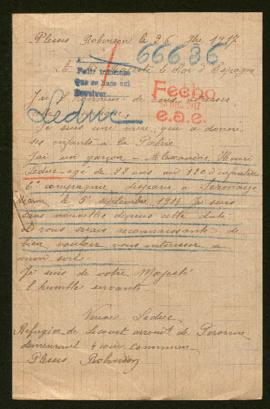 Plessis Robinson le 26 Xbre 1917
66636
Le Roi d'Espagne
Pedir informes
Que se hace así
Devolver
Fecho
e.a.e.
Leduc
Je suis une mère qui a donné
ses enfants à la Patrie
J'ai un garçon Alexandre Henri
Leduc âgé de 28 ans au 120 d'infanterie
6e compagnie disparu à Sermaize
Marne le 5 septembre 1914 Je suis
sans nouvelles depuis cette date
et vous serais reconnaissante de
bien vouloir vous intéresser à
mon sort
Je suis de votre Majesté
l'humble servante
Veuve Leduc
Réfugiée de arrondt de Peronne
demeurant 4 rue
Plessis Robinson